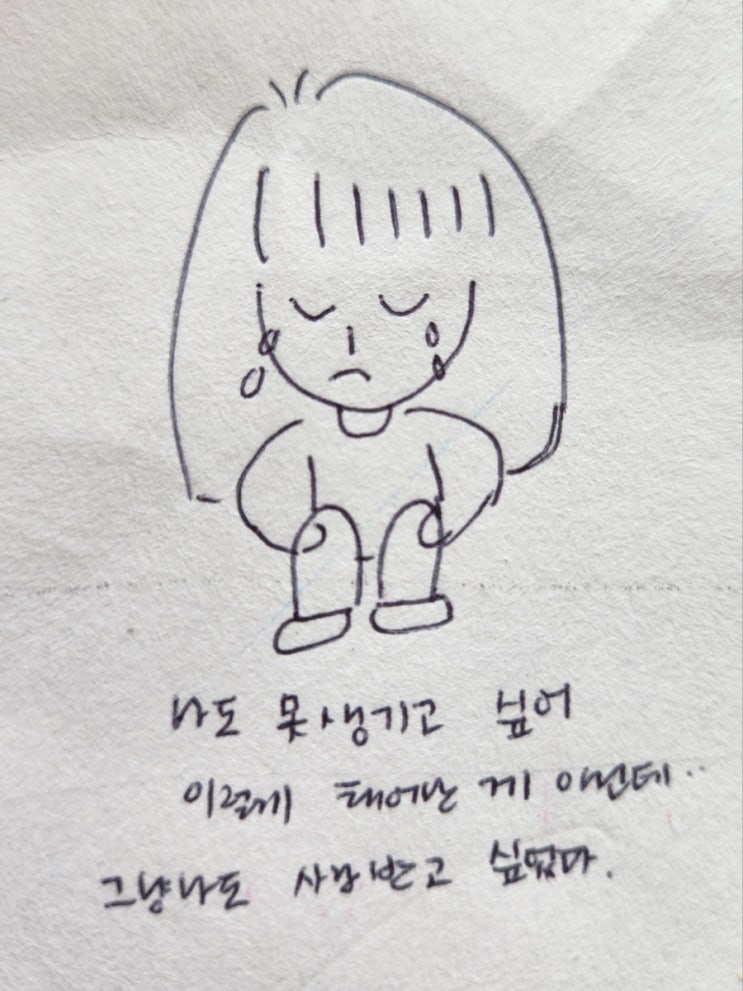 나도 못생기고 싶어
이렇게 태어난 게 아닌데..
그냥 나도 사랑받고 싶었다.